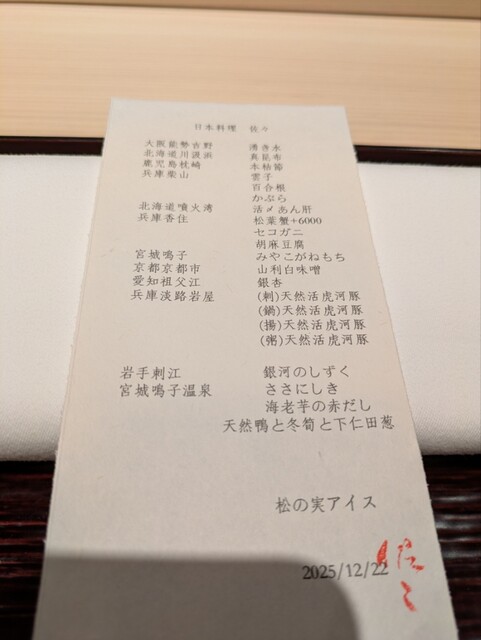 日本料理 佐々
大阪能勢吉野 湧き水
北海道川汲浜 真昆布
鹿児島枕崎 本枯節
兵庫柴山 雲子
百合根
かぶら
北海道噴火湾 活〆あん肝
兵庫香住 松葉蟹+6000
セコガニ
胡麻豆腐
宮城鳴子 みやこがねもち
京都京都市 山利白味噌
愛知祖父江 銀杏
兵庫淡路岩屋 (刺)天然活虎河豚
(鍋)天然活虎河豚
(揚)天然活虎河豚
(粥)天然活虎河豚
岩手刺江 銀河のしずく
宮城鳴子温泉 ささにしき
海老芋の赤だし
天然鴨と冬筍と下仁田葱
松の実アイス
2025/12/22